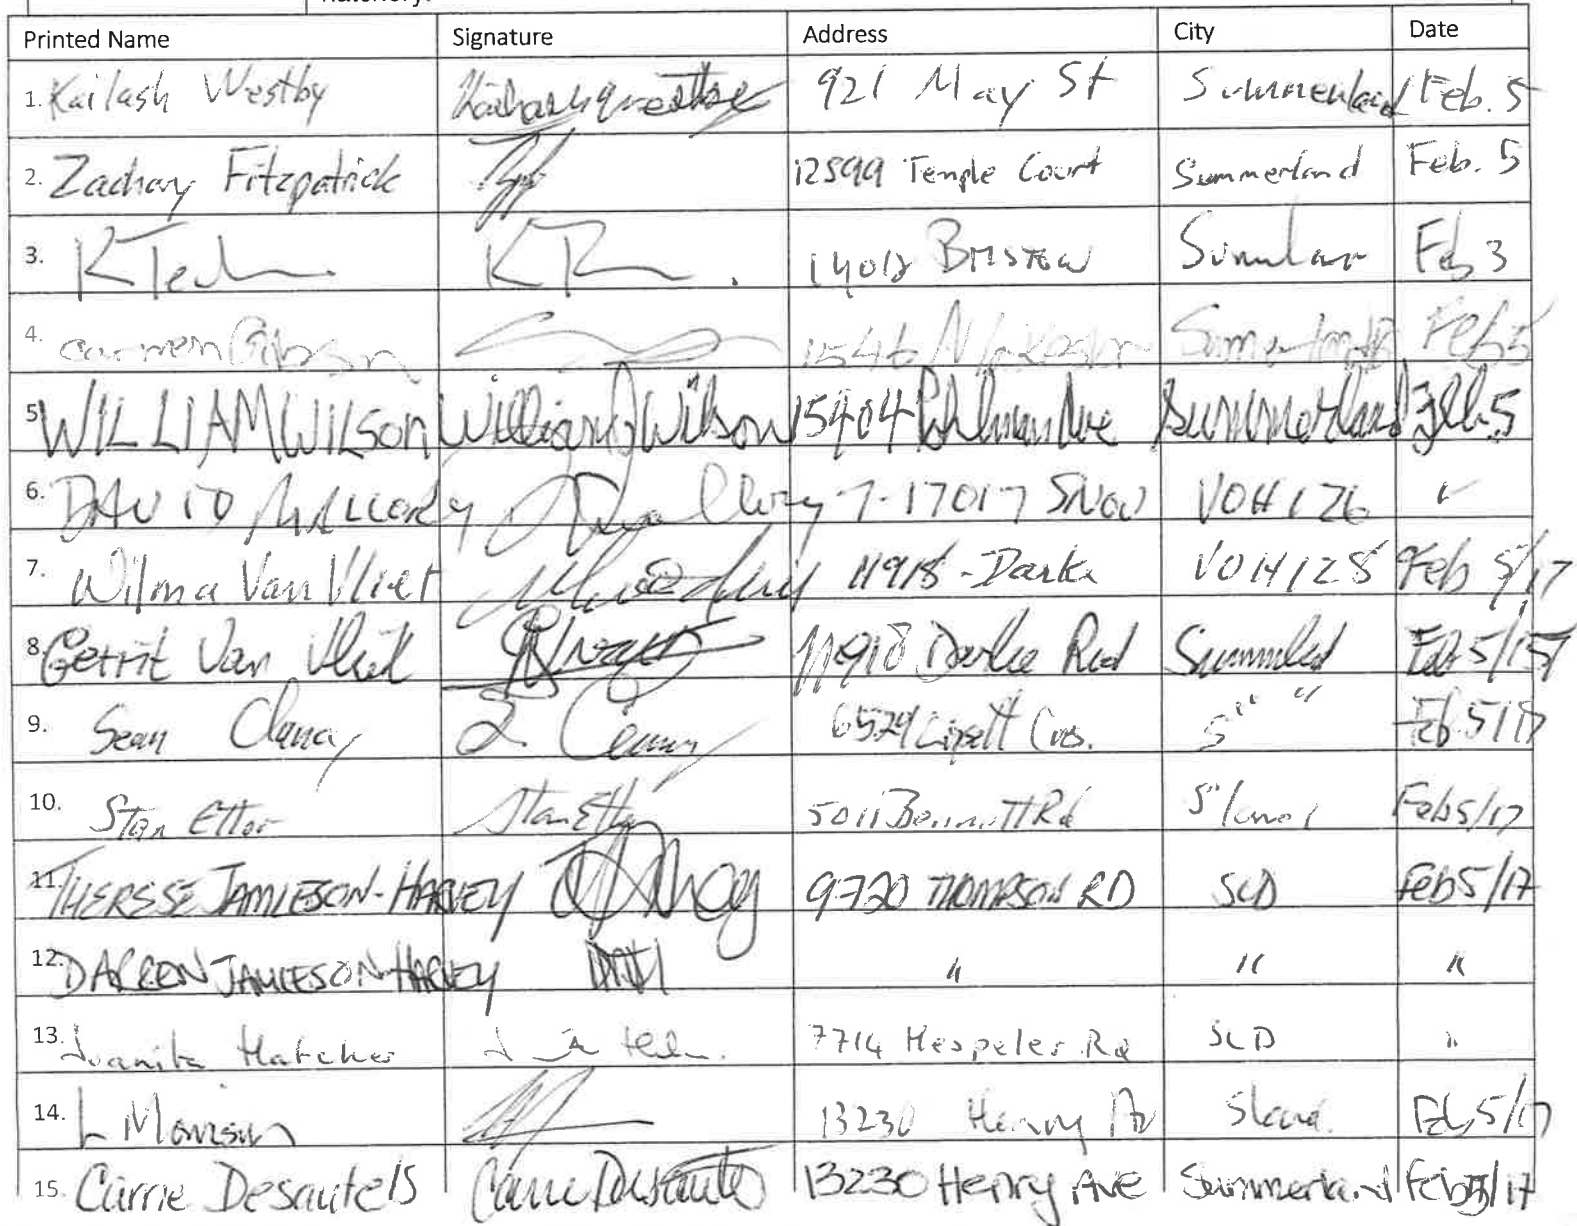 Printed Name Signature Address City Date
1. Kailash Westby Kailash Westby 921 May St Summerland Feb. 5
2. Zachary Fitzpatrick 12599 Temple Court Summerland Feb. 5
3. K 14012 BRISTOW Feb 3
4. carmen Gibson Feb 5
5 WILLIAM WILSON William J Wilson 15404 Ave Summerland Feb 5
6. DAVID MALLORY 7-17017 SNOW V0H 1Z6 "
7. Wilma Van Vliet 11918 - Darke V0H 1Z8 Feb 5/17
8. Gerrit Van Vliet 11918 Darke Rd Feb 5/
9. Sean Clancy S. 6524 Cres. S " " Feb 5/17
10. Stan Stan 5011 Bennett Rd S'land Feb 5/17
11. THERESE JAMIESON-HARVEY 9720 THOMPSON RD SLD Feb 5/17
12. DARREN JAMIESON-HARVEY " " "
13. Juanita Hatcher 7714 Hespeler Rd SLD "
14. L Morrison 13230 Henry Av Sland. Feb 5/17
15. Carrie Desautels Carrie Desautels 13230 Henry AVE Summerland Feb 5/17